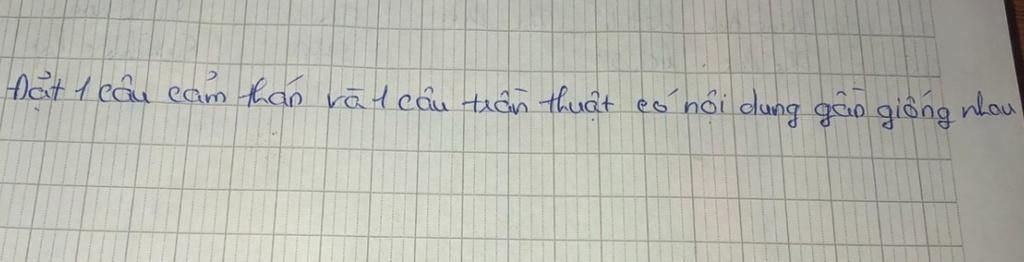 Đặt 1 câu cảm thán và 1 câu trần thuật có nội dung gần giống nhau